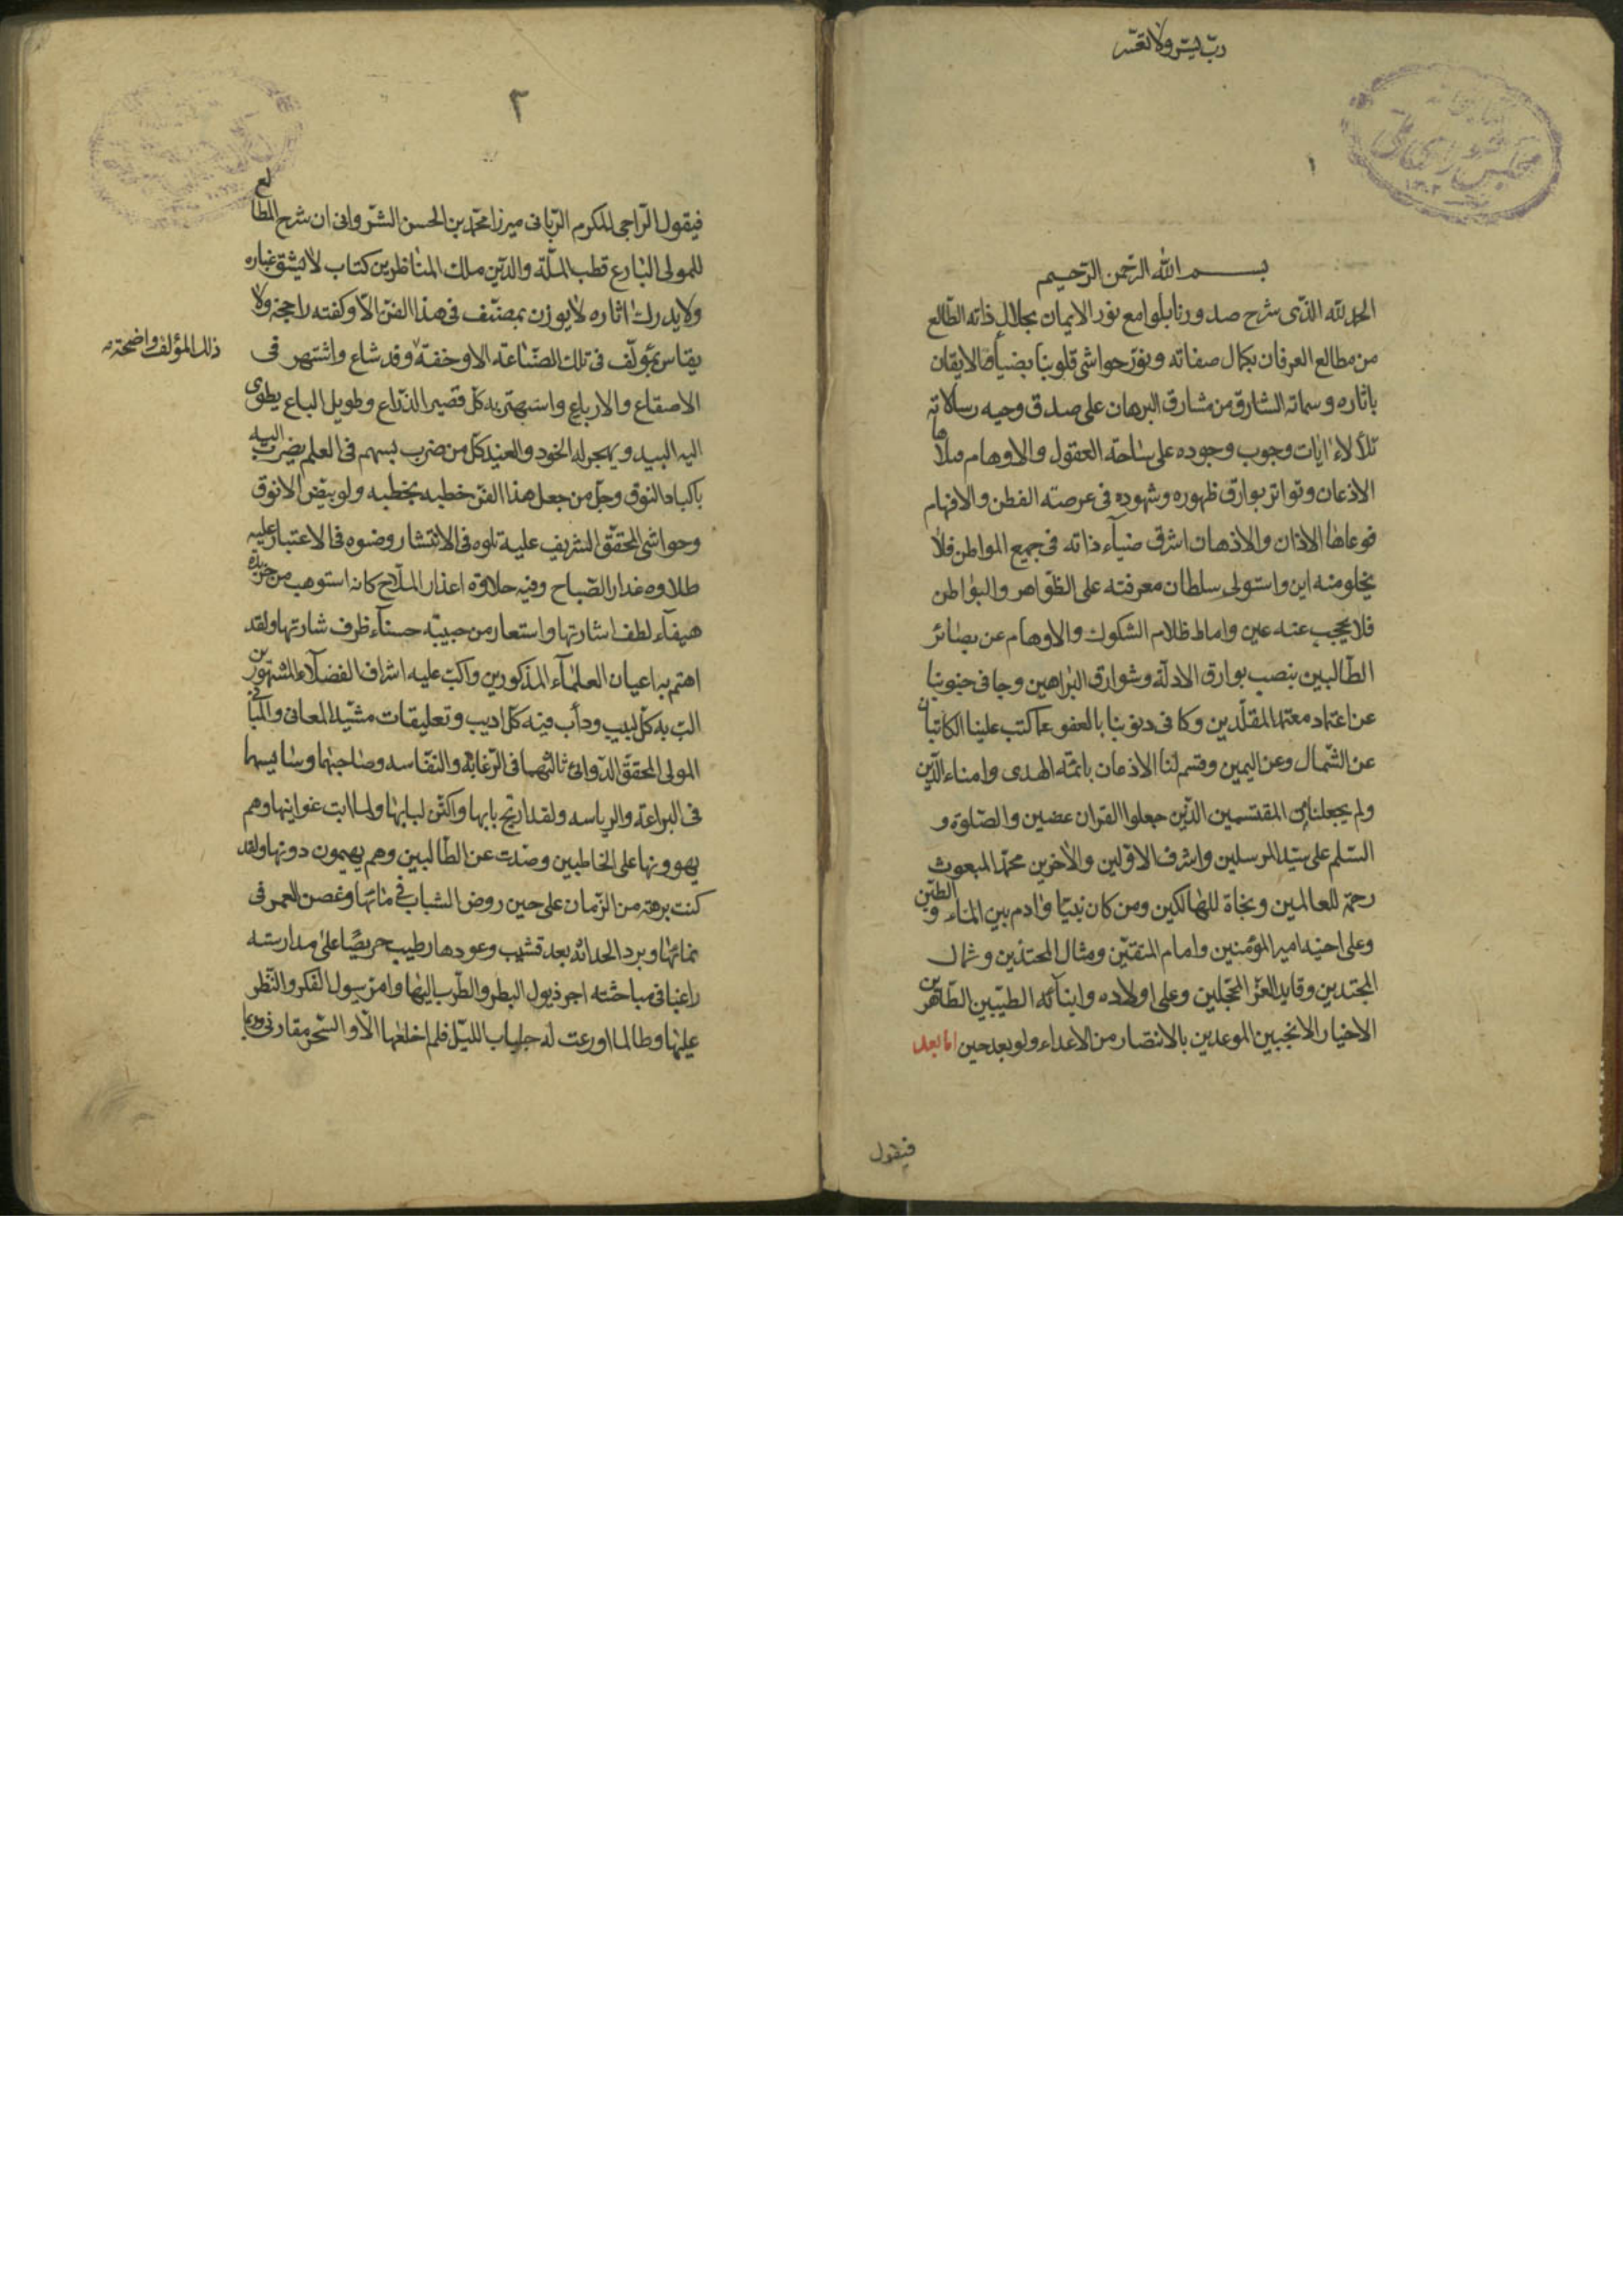 ربّ يسّر ولا تعسّر
١
بسم الله الرّحمن الرّحيم
الحمد لله الذّى شرح صدورنا بلوامع نور الايمان بجلال ذاته الطّالع
من مطالع العرفان بكمال صفاته و نوّر حواشى قلوبنا بضيآء الايقان
باثاره و سماته الشارق من مشارق البرهان على صدق وحيه رسالاته
تلألاء ايات وجوب وجوده على ساحة العقول والاوهام فملا
الاذعان و تواتر بوارق ظهوره و شهوده فى عرصته الفطن والافهام
فوعاها الاذان والاذهان اشرق ضيآء ذاته فى جميع المواطن فلا
يخلو منه اين واستولى سلطان معرفته على الظّواهر والبواطن
فلا يحجب عنه عين واماط ظلام الشكوك والاوهام عن بصائر
الطّالبين بنصب بوارق الادلّة و شوارق البراهين و جافى جنوبنا
عن اعتماد معتمد المقلّدين و كافى ذنوبنا بالعفو عما كتب علينا الكاتبان
عن الشّمال وعن اليمين وقسم لنا الاذعان بائمّة الهدى وامناء الدّين
ولم يجعلنا من المقتسمين الذّين جعلوا القران عضين والصّلوة و
السّلم على سيّد المرسلين واشرف الاوّلين والاخرين محمّد المبعوث
رحمة للعالمين ونجاة للهالكين ومن كان نبيّا وادم بين الماء و الطين
وعلى اخيه امير المؤمنين وامام المتقّين ومثال المحتذين و ثمال
المجتدين وقايد الغرّ المحجّلين وعلى اولاده وابنآئه الطيّبين الطّاهرين
الاخيار الانجبين الموعدين بالانتصار من الاعداء ولو بعد حين امّا بعد
فيقول
٢
فيقول الرّاجى للكرم الرّبانى ميرزا محمّد بن الحسن الشّروانى ان شرح المطالع
للمولى البارع قطب الملّة والدّين ملك المناظرين كتاب لا يشق غباره
ولا يدرك اثاره لا يوزن بمصنّف فى هذا الفنّ الاّ وكفته راجحة ولا
يقاس بمؤلّف فى تلك الصّناعة الا وخفة وقد شاع واشتهر فى
ذلك المؤلف واضحة
الاصقاع والارباع واستهتر به كلّ قصير الذّراع وطويل الباع يطوى
اليه البيد ويهجر له الخود والغيد كلّ من ضرب بسهم فى العلم يضرب اليه
باكباد النوق وجلّ من جعل هذا الفنّ خطبه يخطبه ولو ببيض الانوق
وحواشى المحقّق الشريف عليه تلوه فى الانتشار وصنوه فى الاعتبار عليه
طلاوه غدار الصّباح وفيه حلاوة اعذار الملاح كانه استوهب من خريدة
هيفآء لطف اشارتها واستعار من حبيبة حسنآء ظرف شارتها ولقد
اهتم به اعيان العلمآء المذكورين واكبّ عليه اشراف الفضلاء المشهورين
البّ به كلّ لبيب ودأب فيه كلّ اديب وتعليقات مشيّد المعانى والمبانى
المولى المحقّق الدّوانى ثالثهما فى الرّغابة والنفّاسه وصاحبتهما وسائيهما
فى البراعة والرياسه ولقد ارتج بابها واكنّ لبابها ولما ابت غوانيها وهم
يهوونها على الخاطبين وصدّت عن الطّالبين وهم يهيمون دونها ولقد
كنت برهة من الزّمان على حين روض الشباب فى مائها وغصن العمر فى
نمائها وبرد الحداثة بعد قشيب وعودها رطيب حريصا على مدارسته
راغبا فى مباحثته اجرّ ذيول البطر والطّرب اليها وامرّ سيول الفكر والنّظر
عليها وطالما اورعت له جلباب الليّل فلم اخلعها الاّ و السّحر مقارنى وربما